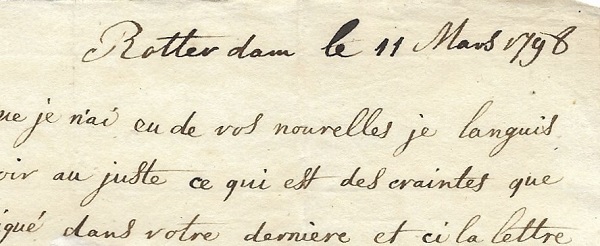 Rotterdam le 11 Mars 1798
ue je n'ai eu de vos nourelles je languis
oir au juste ce qui est des craintes que
iqué dans votre dernière et ci la lettre